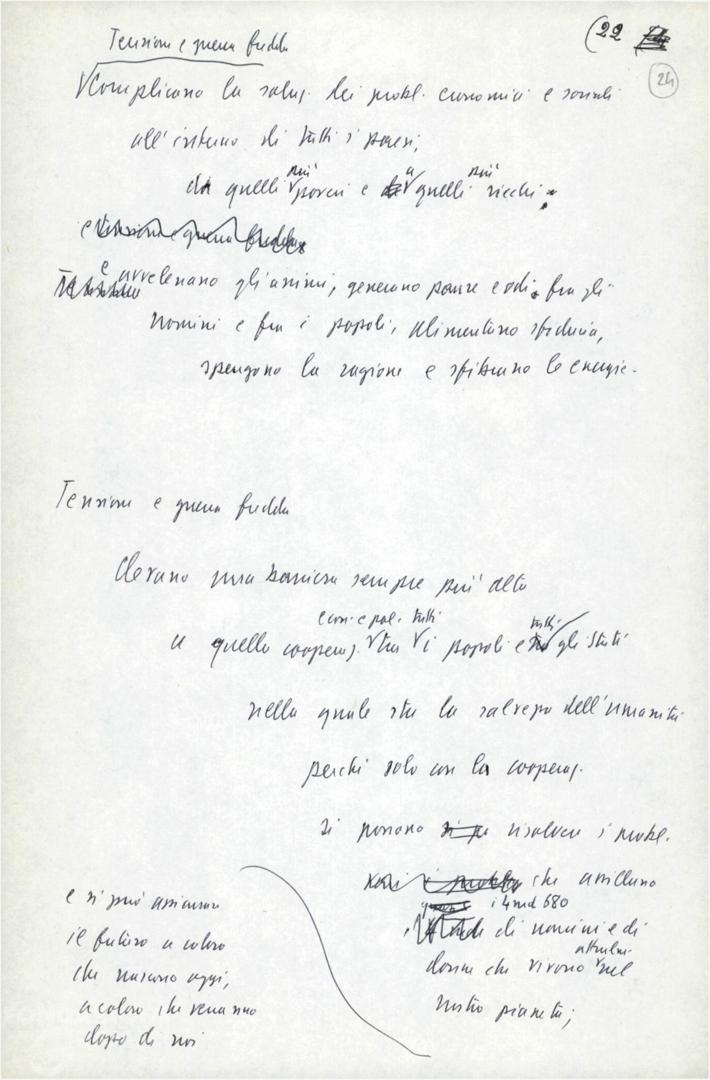 (22
24
Tensione e guerra fredda
Complicano la soluz. dei probl. economici e sociali
all'interno di tutti i paesi,
da quelli più poveri e a quelli più ricchi;
e tensione e guerra fredda
e avvelenano gli animi, generano paure e odi fra gli
uomini e fra i popoli, alimentano sfiducia,
spengono la ragione e sfibrano le energie.
Tensione e guerra fredda
elevano una barriera sempre più alta
a quella cooperaz. econ. e pol. tra tutti i popoli e tutti gli Stati
nella quale sta la salvezza dell'umanità
perché solo con la cooperaz.
si possono risolvere i probl.
che assillano
i 4 md 680
di uomini e di
donne che vivono attualm. nel
nostro pianeta;
e si può assicurare
il futuro a coloro
che nascono oggi,
a coloro che verranno
dopo di noi